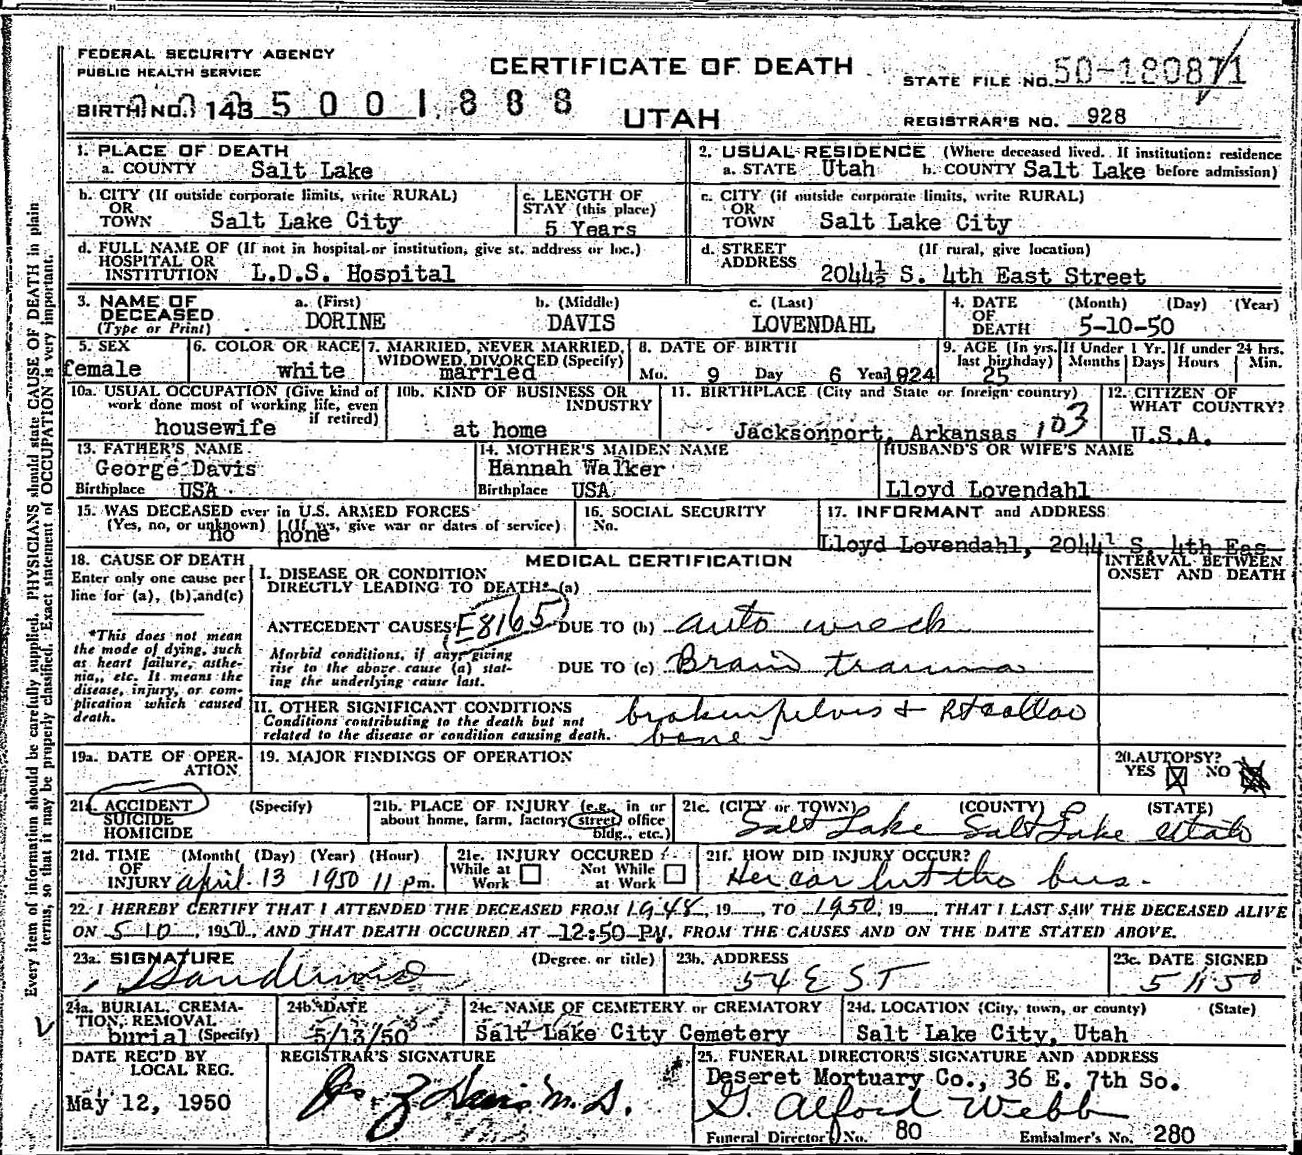 FEDERAL SECURITY AGENCY
PUBLIC HEALTH SERVICE
CERTIFICATE OF DEATH
UTAH
STATE FILE NO. 50-180871
BIRTH NO. 143 5 0 0 1 8 8 8
REGISTRAR'S NO. 928
Every item of information should be carefully supplied. PHYSICIANS should state CAUSE OF DEATH in plain
terms, so that it may be properly classified. Exact statement of OCCUPATION is very important.
1. PLACE OF DEATH
a. COUNTY Salt Lake
2. USUAL RESIDENCE (Where deceased lived. If institution: residence
a. STATE Utah b. COUNTY Salt Lake before admission)
b. CITY (If outside corporate limits, write RURAL)
OR
TOWN Salt Lake City
c. LENGTH OF
STAY (this place)
5 Years
c. CITY (if outside corporate limits, write RURAL)
OR
TOWN Salt Lake City
d. FULL NAME OF (If not in hospital or institution, give st. address or loc.)
HOSPITAL OR
INSTITUTION L.D.S. Hospital
d. STREET (If rural, give location)
ADDRESS 2044½ S. 4th East Street
3. NAME OF DECEASED
(Type or Print)
a. (First) b. (Middle) c. (Last)
DORINE DAVIS LOVENDAHL
4. DATE OF DEATH (Month) (Day) (Year)
5-10-50
5. SEX
female
6. COLOR OR RACE
white
7. MARRIED, NEVER MARRIED,
WIDOWED, DIVORCED (Specify)
married
8. DATE OF BIRTH
Mo. 9 Day 6 Year 1924
9. AGE (In yrs. last birthday) 25
If Under 1 Yr. Months Days
If under 24 hrs. Hours Min.
10a. USUAL OCCUPATION (Give kind of
work done most of working life, even
if retired)
housewife
10b. KIND OF BUSINESS OR
INDUSTRY
at home
11. BIRTHPLACE (City and State or foreign country)
Jacksonport, Arkansas 103
12. CITIZEN OF
WHAT COUNTRY?
U.S.A.
13. FATHER'S NAME
George Davis
Birthplace USA
14. MOTHER'S MAIDEN NAME
Hannah Walker
Birthplace USA
HUSBAND'S OR WIFE'S NAME
Lloyd Lovendahl
15. WAS DECEASED ever in U.S. ARMED FORCES
(Yes, no, or unknown) (If yes, give war or dates of service)
no none
16. SOCIAL SECURITY
No.
17. INFORMANT and ADDRESS
Lloyd Lovendahl, 2044½ S. 4th Eas
18. CAUSE OF DEATH
Enter only one cause per
line for (a), (b), and (c)
*This does not mean
the mode of dying, such
as heart failure, asthe-
nia, etc. It means the
disease, injury, or com-
plication which caused
death.
MEDICAL CERTIFICATION
INTERVAL BETWEEN
ONSET AND DEATH
I. DISEASE OR CONDITION
DIRECTLY LEADING TO DEATH* (a)
ANTECEDENT CAUSES E8165 DUE TO (b) auto wreck
Morbid conditions, if any, giving
rise to the above cause (a) stat-
ing the underlying cause last.
DUE TO (c) Brain trauma
II. OTHER SIGNIFICANT CONDITIONS
Conditions contributing to the death but not
related to the disease or condition causing death.
broken pelvis + Rt collar
bone
19a. DATE OF OPER-
ATION
19. MAJOR FINDINGS OF OPERATION
20. AUTOPSY?
YES NO
21a. ACCIDENT (Specify)
SUICIDE
HOMICIDE
21b. PLACE OF INJURY (e.g., in or
about home, farm, factory, street, office
bldg., etc.)
21c. (CITY or TOWN) (COUNTY) (STATE)
Salt Lake Salt Lake Utah
21d. TIME (Month) (Day) (Year) (Hour)
OF
INJURY April 13 1950 11 pm.
21e. INJURY OCCURED
While at Work Not While at Work
21f. HOW DID INJURY OCCUR?
Her car hit the bus.
22. I HEREBY CERTIFY THAT I ATTENDED THE DECEASED FROM 1948, 19__, TO 1950, 19__, THAT I LAST SAW THE DECEASED ALIVE
ON 5-10, 1950, AND THAT DEATH OCCURED AT 12:50 PM, FROM THE CAUSES AND ON THE DATE STATED ABOVE.
23a. SIGNATURE (Degree or title)
23b. ADDRESS
54 E S T
23c. DATE SIGNED
5 11 50
24a. BURIAL, CREMA-
TION, REMOVAL
burial (Specify)
24b. DATE
5/13/50
24c. NAME OF CEMETERY or CREMATORY
Salt Lake City Cemetery
24d. LOCATION (City, town, or county) (State)
Salt Lake City, Utah
DATE REC'D BY
LOCAL REG.
May 12, 1950
REGISTRAR'S SIGNATURE
M.D.
25. FUNERAL DIRECTOR'S SIGNATURE AND ADDRESS
Deseret Mortuary Co., 36 E. 7th So.
G. Alford Webb
Funeral Director No. 80 Embalmer's No. 280